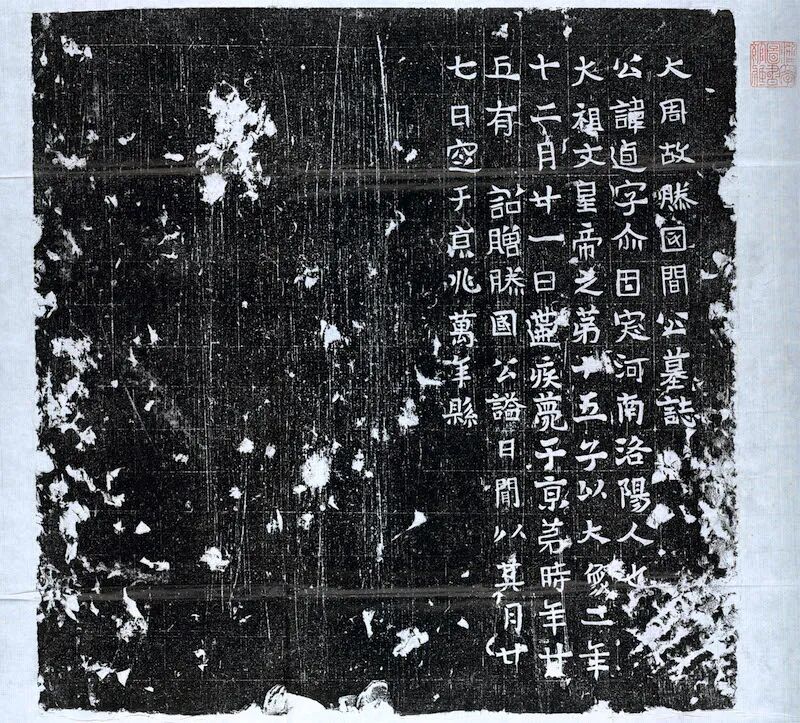 大周故滕国間公墓誌
公諱逌字尒固突河南洛陽人也
大祖文皇帝之第十五子以大象二年
十二月廿一日遘疾薨于京第時年廿
五有 詔贈滕國公謚曰閒以其月廿
七日窆于京兆萬年縣